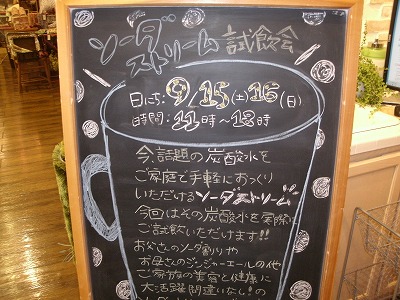 ソーダストリーム試飲会
日にち:9/15(土)16(日)
時間:11時〜18時
今、話題の炭酸水を
ご家庭で手軽におつくり
いただけるソーダストリーム
今回はその炭酸水を実際に
ご試飲いただけます!!
お父さんのソーダ割りや
お母さんのジンジャーエールの他
ご家族の美容と健康に
大活躍間違いなし!の